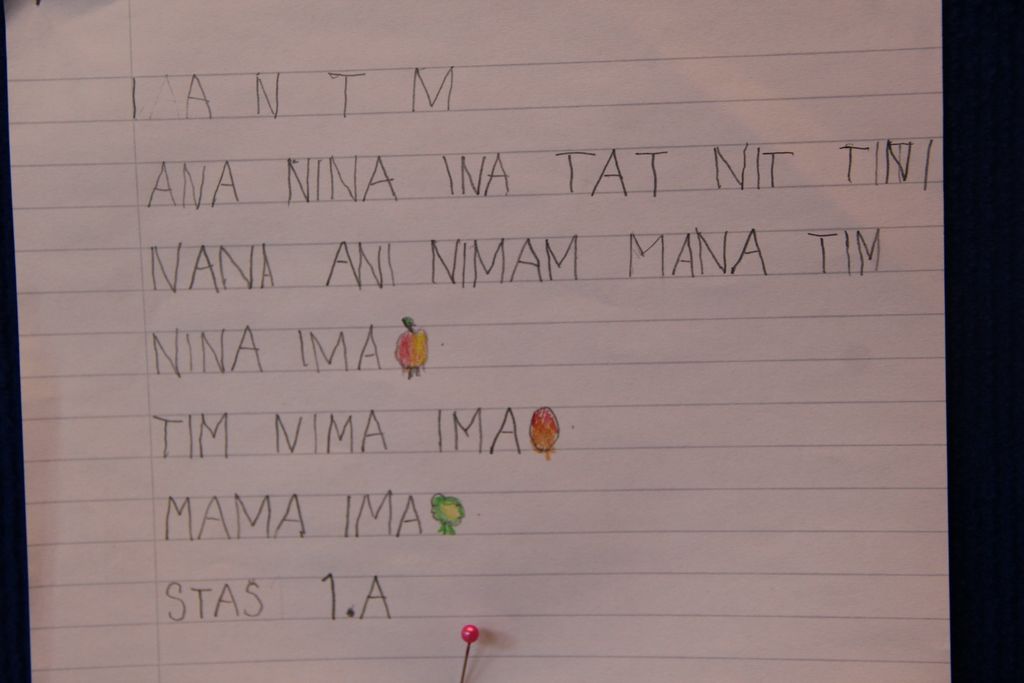 I A N T M
ANA NINA INA TAT NIT TINI
NANA ANI NIMAM MANA TIM
NINA IMA
TIM NIMA IMA
MAMA IMA
STAS 1.A